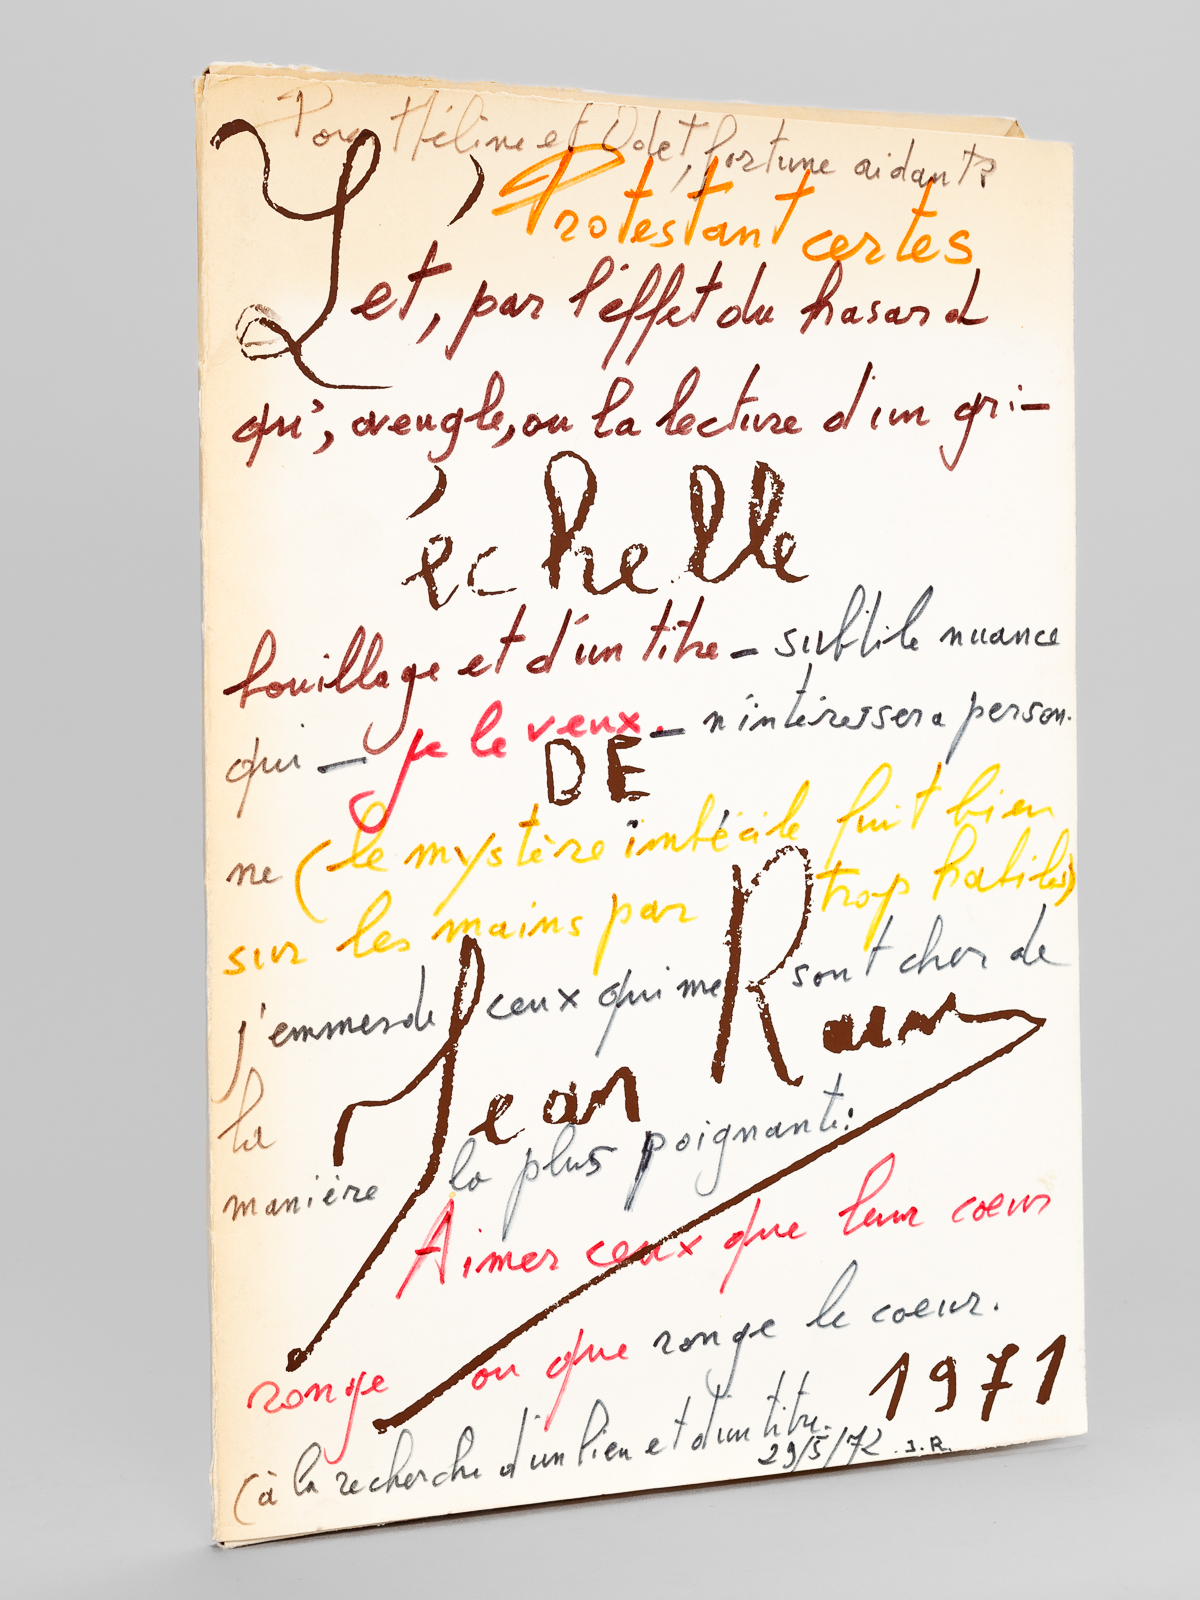 Pour Hélène et Odet, fortune aidant
L'
Protestant certes
et, par l'effet du hasard
qu', aveugle, ou la lecture d'un gri-
échelle
bouillage et d'un titre - subtile nuance
qui - je le veux. - n'intéressera person-
DE
ne (le mystère imbécile fuit bien
sur les mains par trop habiles)
j'emmerde ceux qui me sont cher de
Jean
la
manière la plus poignante:
Aimer ceux que leur coeur
ronge ou que ronge le coeur.
1971
(à la recherche d'un lien et d'un titre.
29/5/72. J.R.